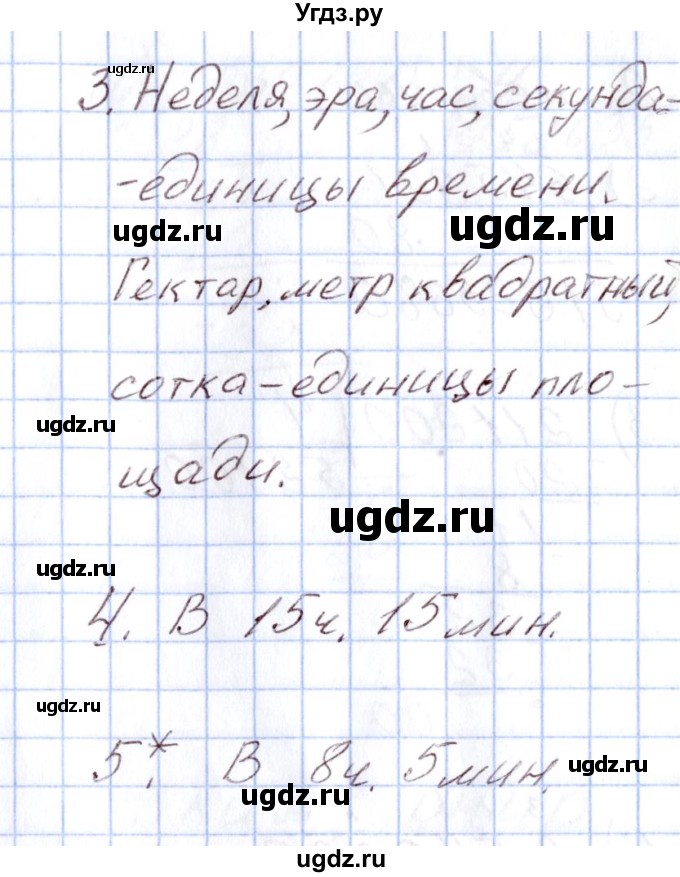 Угдз.ру
ugdz.ru
3. Неделя, эра, час, секунда-
-единицы времени.
ugdz.ru
ugdz.ru
Гектар, метр квадратный,
сотка - единицы пло-
ugdz.ru
щади.
ugdz.ru
ugdz.ru
4. В 15ч. 15мин.
ugdz.ru
5*. В 8ч. 5мин.
ugdz.ru
ugdz.ru
ugdz.ru